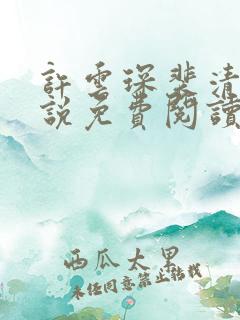 許雲琛裴清
說免費閱讀
西瓜太黑
未經同意禁止轉載